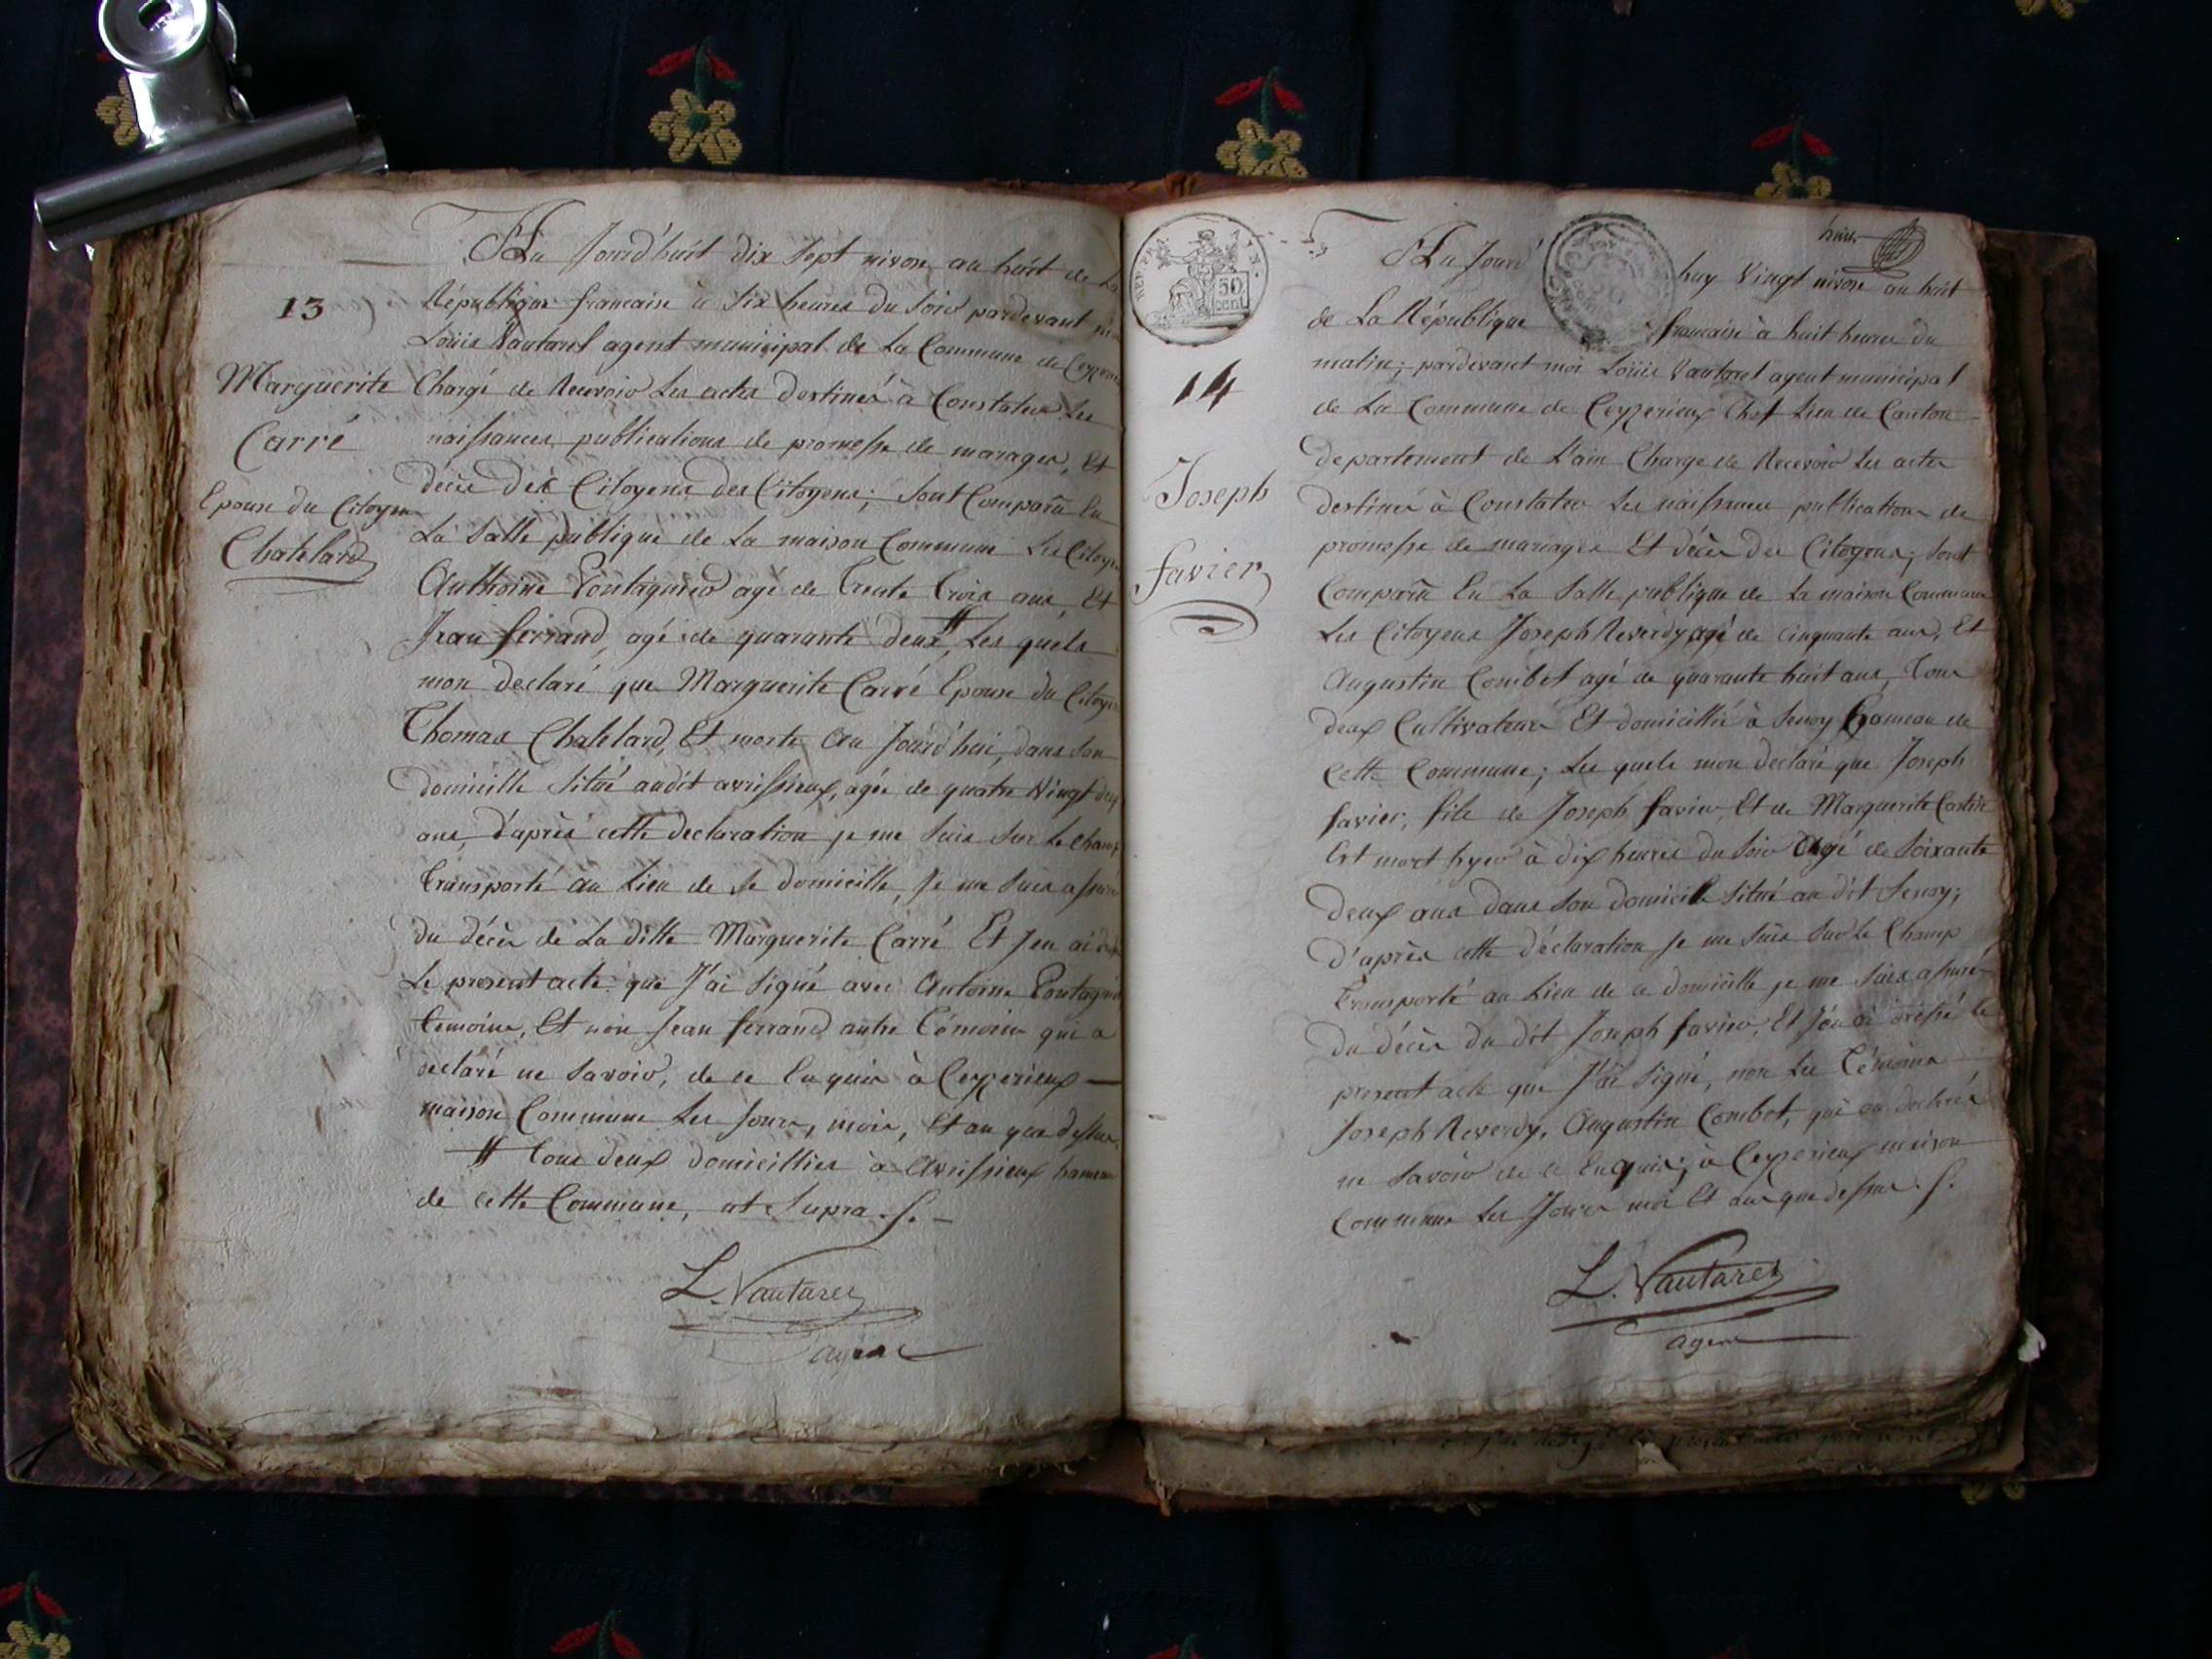 Au Jourd'huit dix Sept nivose an huit de La
République francaise à Six heures du Soir pardevant
Loüis Vautaret agent municipal de La Commune de
13
Chargé de Recevoir Les actes destinés à Constater Les
Marguerite
Carré
Epouse du Citoyen
Chatelard
naissances publications de promesse de marages, Et
décès des Citoyens des Citoyens; Sont Comparu En
La Salle publique de La maison Commune Les Citoyens
Anthoine agé de Trente Trois ans, Et
Jean ferrand, agé de quarante deux, Les quels
mon declaré que Marguerite Carré Epouse du Citoyen
Thomas Chatelard, Et morte au Jourd'hui, dans Son
domicille Situé audit avrissieux, agée de quatre Vingt
ans, d'après cette declaration je me Suis Sur Le champ
Transporté au Lieu de Se domicille, Je me Suis assuré
du décès de La ditte Marguerite Carré Et Jen ai
Le present acte que J'ai Signé avec Antoine
temoins, Et non Jean ferrand autre Témoins qui a
déclaré ne Savoir, de ce Enquis à Ceyzerieux
maison Commune Les Jours, mois, Et an que dessus.
# Tous deux domicilliés à Avrissieux hameau
de cette Commune, ut Supra. S.
L. Vautaret
agent
REP. FRA.
50
cent
14
Joseph
favier
Au Jourd'huy Vingt nivose an huit
de La République francaise à huit heures du
matin; pardevant moi Loüis Vautaret agent municipal
de La Commune de Ceyzerieux Chef Lieu de Canton
departement de L'ain Chargé de Recevoir Les actes
destinés à Constater Les naissances publications de
promesse de mariages Et décès des Citoyens; Sont
Comparu En La Salle publique de La maison Commune
Les Citoyens Joseph Reverdy agé de Cinquante ans, Et
Augustin Combet agé de quarante huit ans, Tous
deux Cultivateurs Et domicilliés à Senoy hameau de
Cette Commune; Les quels mon declaré que Joseph
favier, fils de Joseph favier, Et de Marguerite
Est mort hyer à dix heures du Soir agé de Soixante
deux ans dans Son domicille Situé au dit Senoy;
d'après cette déclaration Je me Suis Sur Le Champ
Transporté au Lieu de ce domicille je me Suis assuré
du décès du dit Joseph favier, Et J'en ai dressé le
present acte que J'ai Signé, non Les Témoins
Joseph Reverdy, Augustin Combet, qui on declarés
ne Savoir de ce Enquis; à Ceyzerieux maison
Commune Les Jours moi Et an que dessus. S.
L. Vautaret
agent